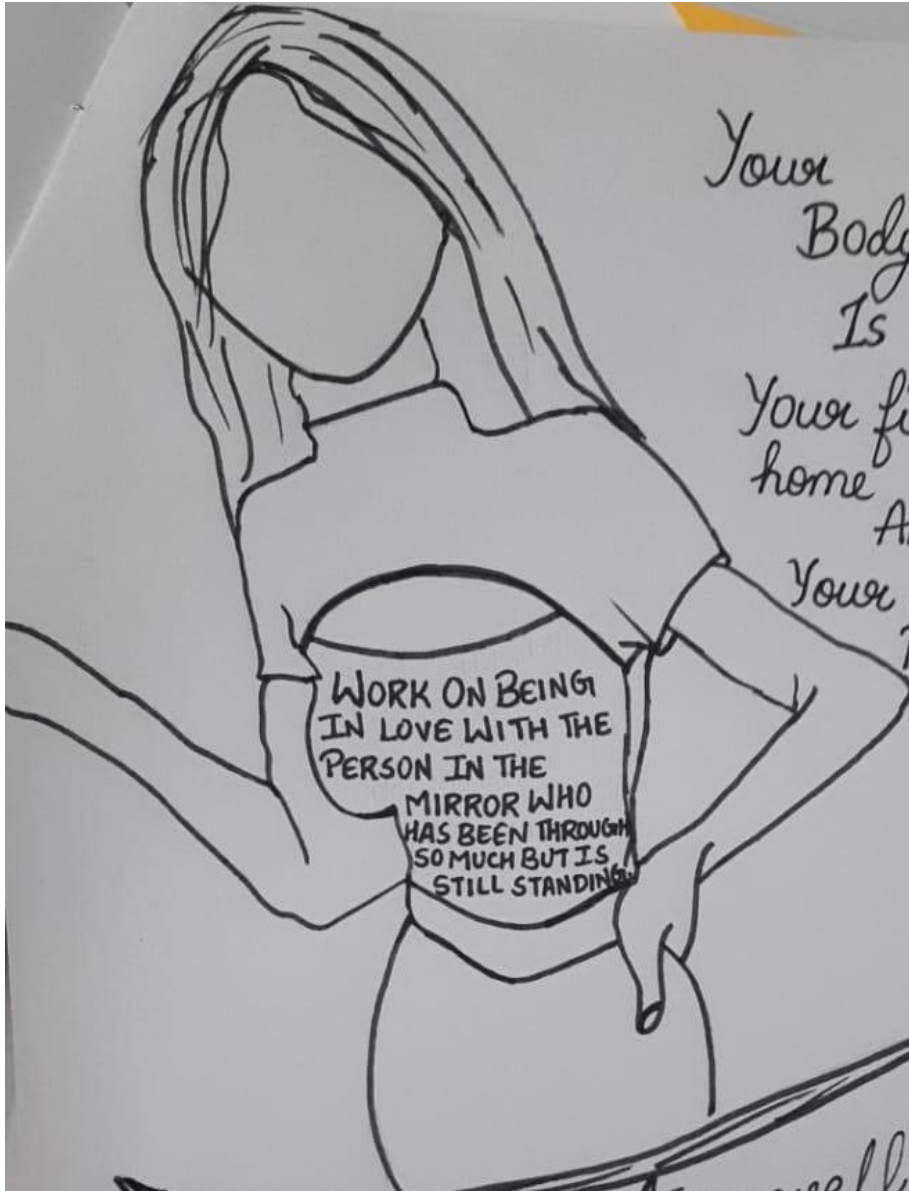 Your
Body
Is
Your
home
Your
WORK ON BEING
IN LOVE WITH THE
PERSON IN THE
MIRROR WHO
HAS BEEN THROUGH
SO MUCH BUT IS
STILL STANDING.